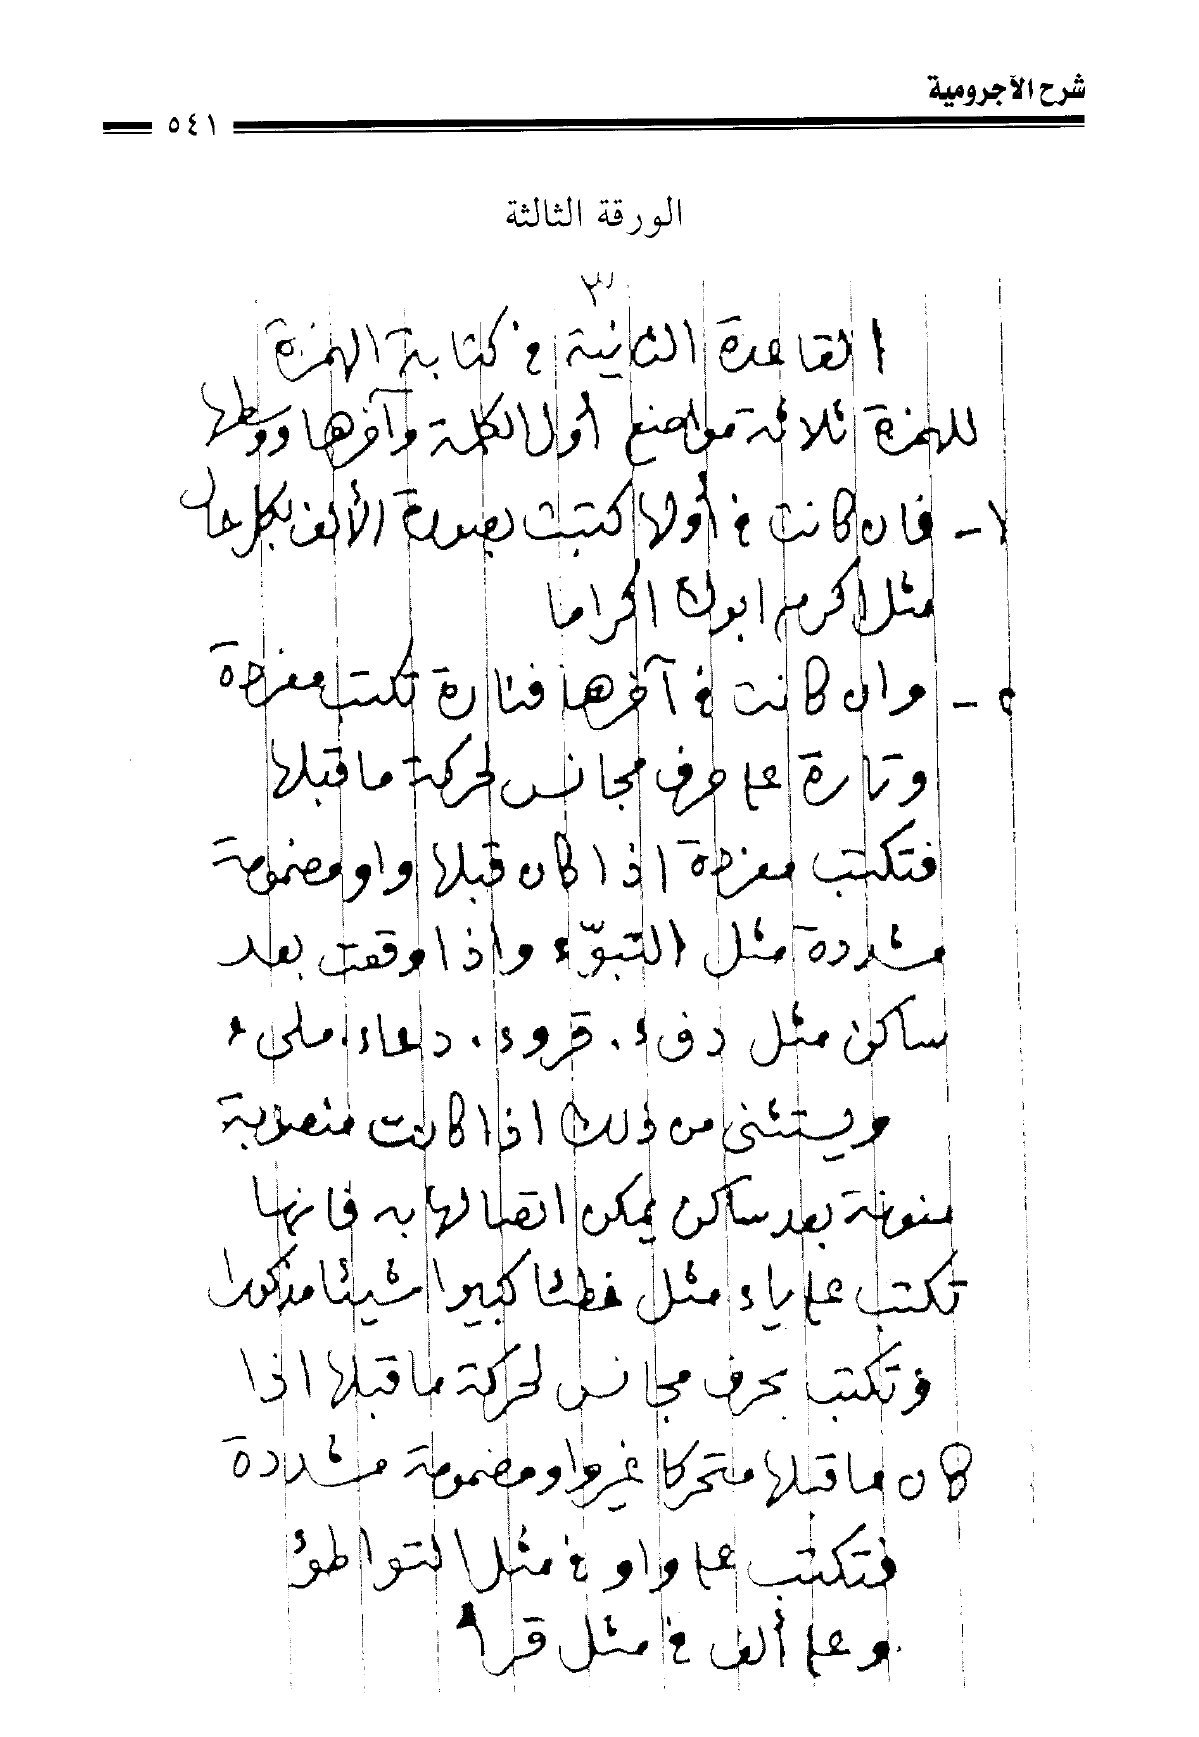 شرح الآجرومية
٥٤١
الورقة الثالثة
٣
القاعدة الثانية في كتابة الهمزة
للهمزة ثلاثة مواضع أول الكلمة وآخرها ووسطها
١ - فان كانت في أولها كتبت بصورة الألف بكل حال
مثل اكرم ابوك اكراما
٢ - وان كانت في آخرها فتارة تكتب مفردة
وتارة على حرف مجانس لحركة ما قبلها
فتكتب مفردة اذا كان قبلها واو مضمومة
مشددة مثل التبوّء واذا وقعت بعد
ساكن مثل دفء . قروء . دعاء . مليء
ويستثنى من ذلك اذا كانت منصوبة
منونة بعد ساكن يمكن اتصالها به فانها
تكتب على ياء مثل خطئا كبيرا شيئا مذكورا
وتكتب بحرف مجانس لحركة ما قبلها اذا
كان ما قبلها متحركا غير واو مضمومة مشددة
فتكتب على واو في مثل التواطؤ
وعلى ألف في مثل قرأ